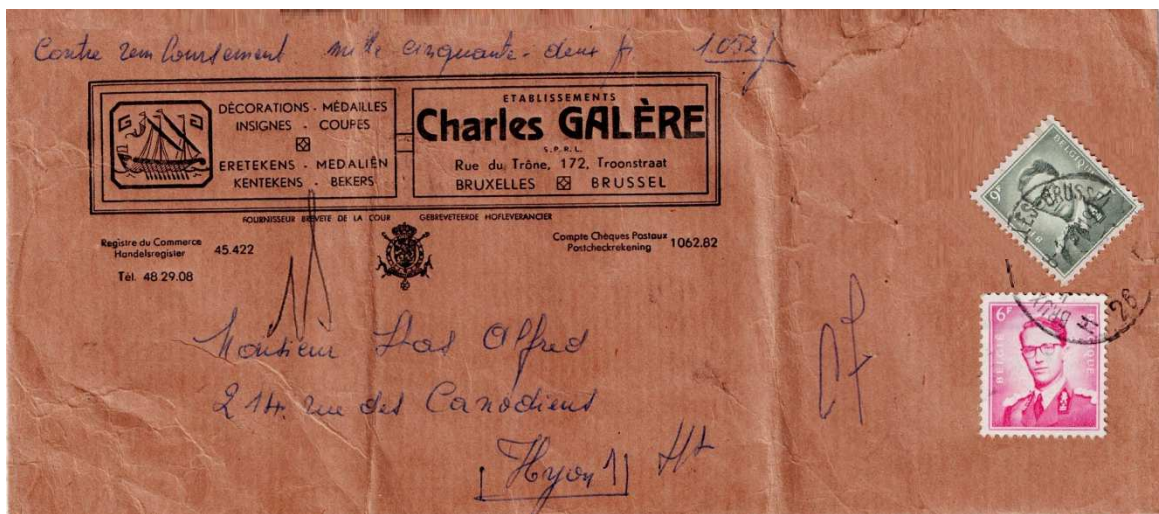 Contre remboursement mille cinquante-deux fr 1052f
DÉCORATIONS - MÉDAILLES
INSIGNES - COUPES
ERETEKENS - MEDALIËN
KENTEKENS - BEKERS
ETABLISSEMENTS
Charles GALÈRE
S.P.R.L.
Rue du Trône, 172, Troonstraat
BRUXELLES BRUSSEL
FOURNISSEUR BREVETÉ DE LA COUR GEBREVETEERDE HOFLEVERANCIER
Registre du Commerce
Handelsregister
45.422
Tél. 48.29.08
Compte Chèques Postaux
Postcheckrekening
1062.82
Monsieur Alfred
214 rue des Canadiens
Hyon 1 Ht
BELGIQUE
9F
6F
BELGIË BELGIQUE
26